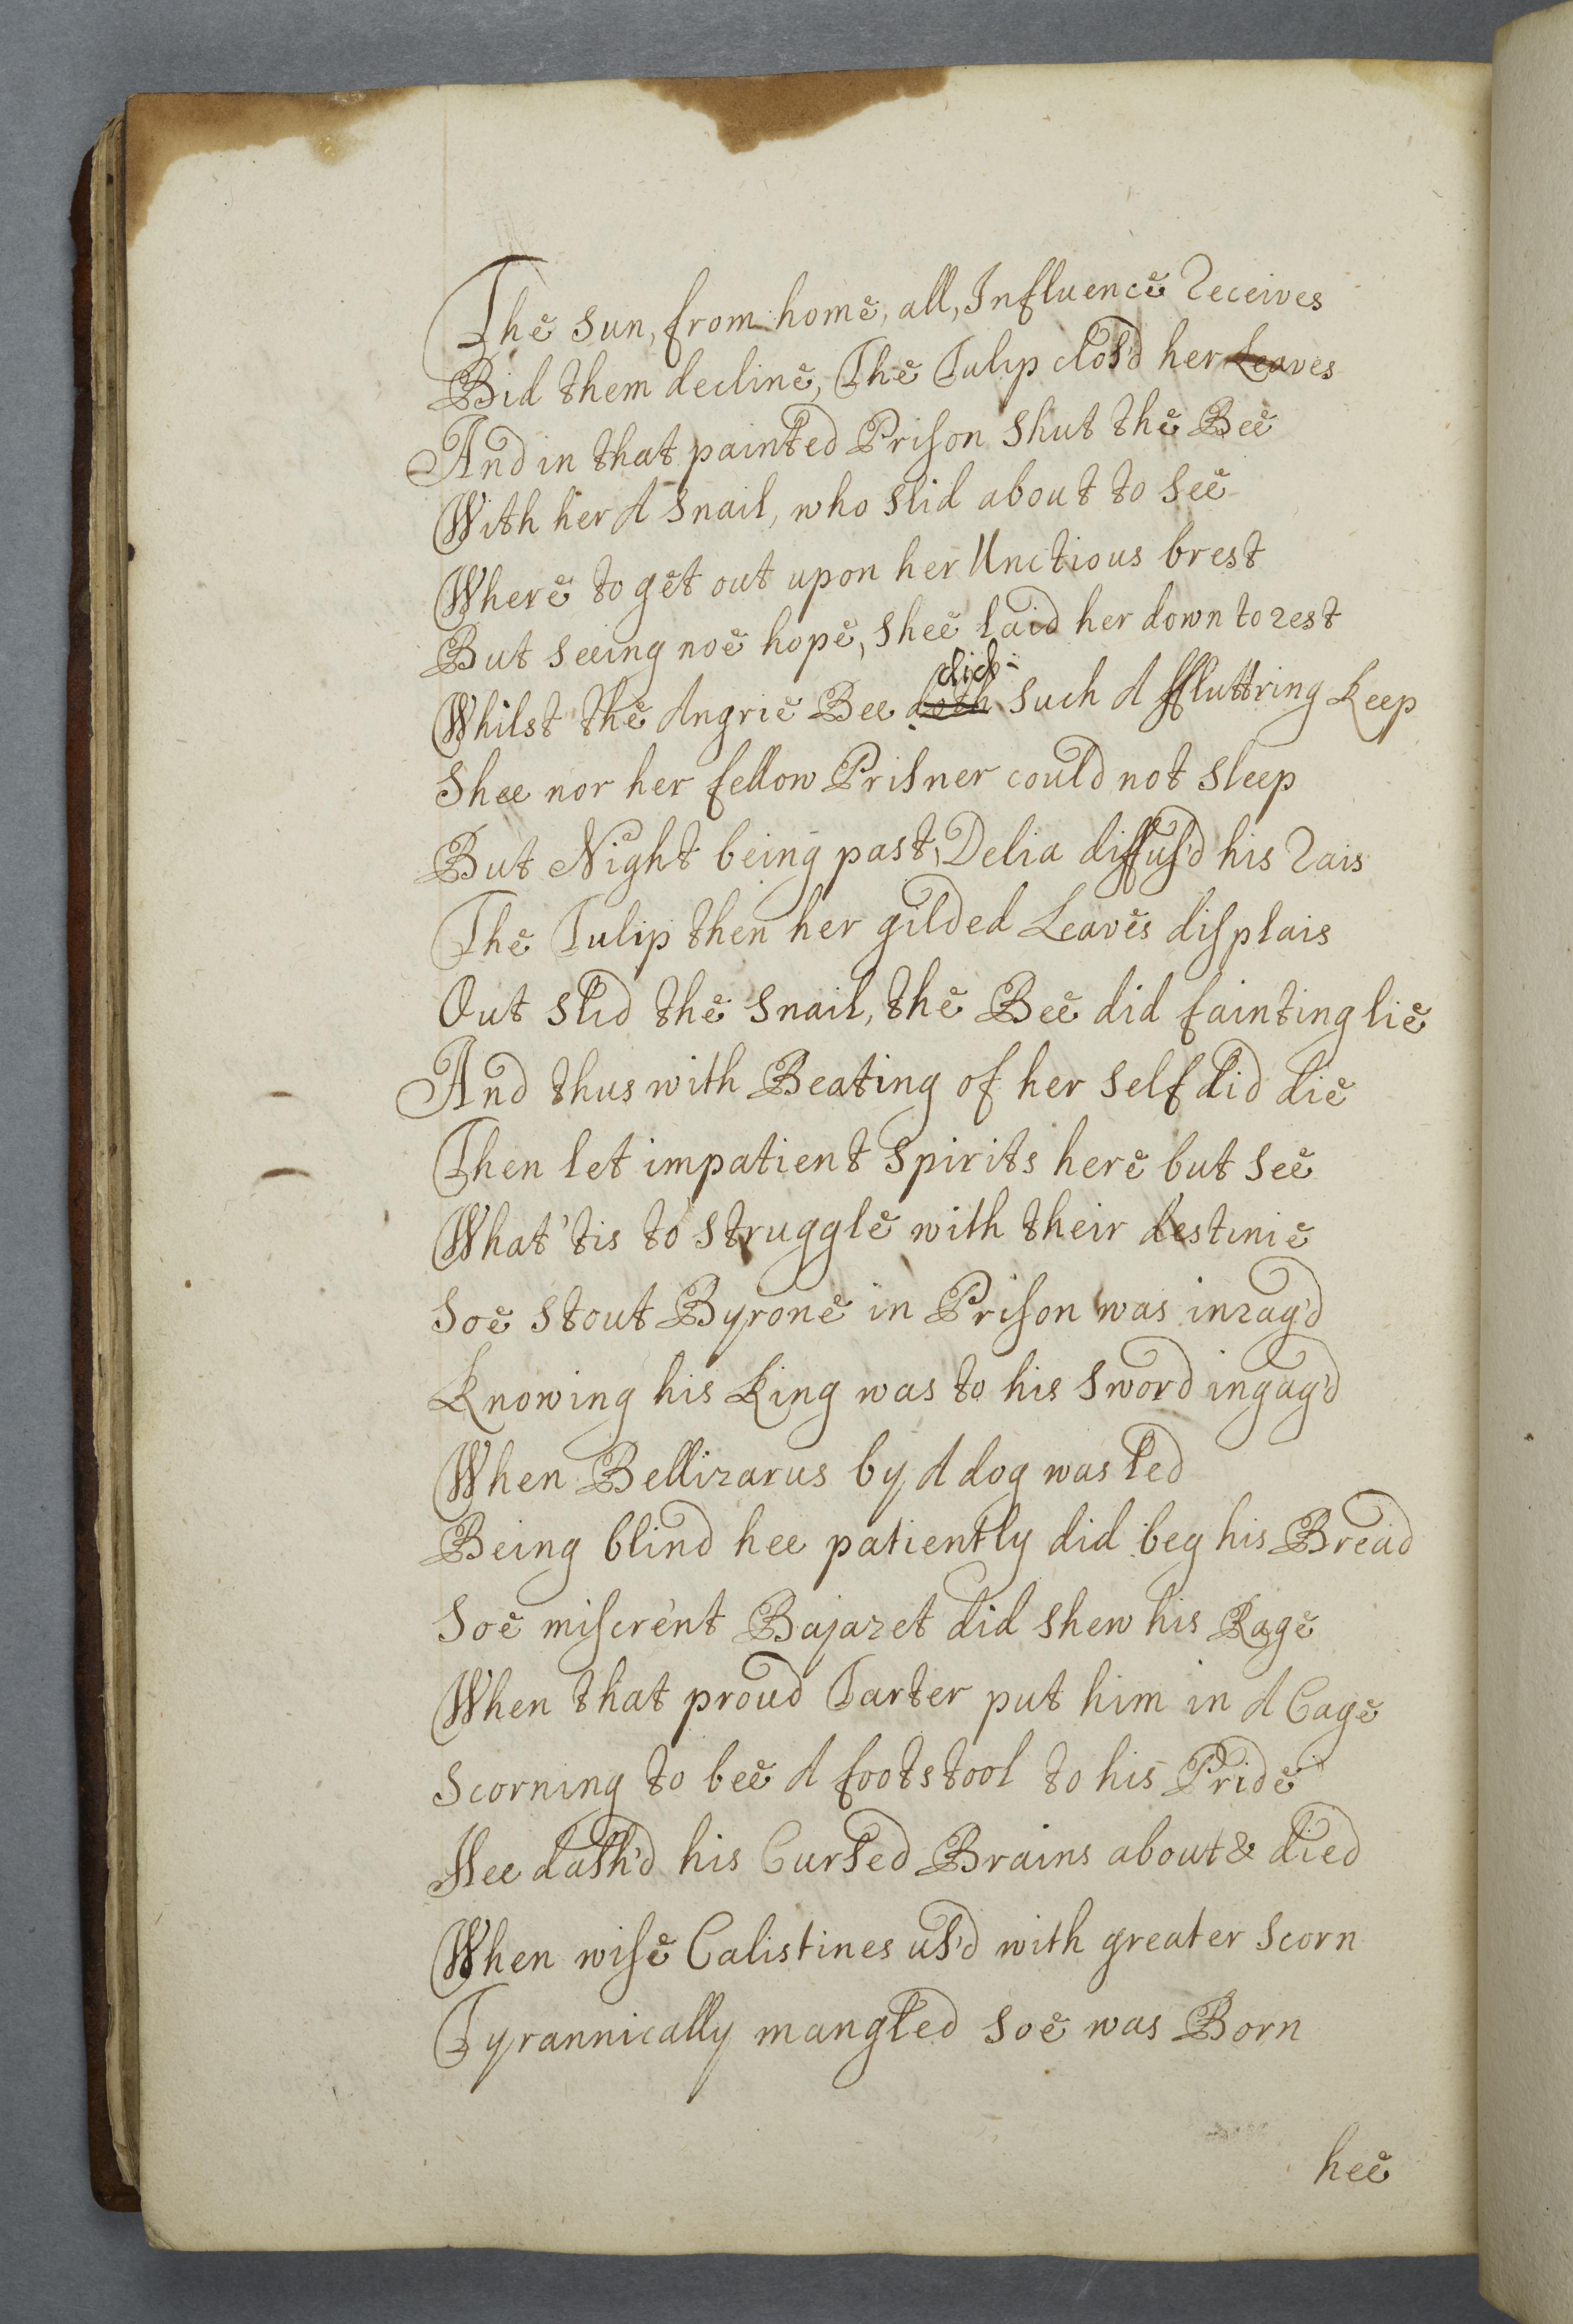 The Sun, from home, all, Influence receives
Bid them decline, The Tulip clos'd her Leaves
And in that painted Prison Shut the Bee
With her A Snail, who Slid about to See
Where to get out upon her Unctious brest
But Seeing noe hope, Shee laid her down to rest
did
Whilst the Angrie Bee doth Such A ffluttring Keep
Shee nor her fellow Prisner could not Sleep
But Night being past, Delia diffus'd his rais
The Tulip then her gilded Leaves displais
Out Slid the Snail, the Bee did fainting lie
And thus with Beating of her Self did die
Then let impatient Spirits here but See
What 'tis to Struggle with their destinie
Soe Stout Byrone in Prison was inrag'd
Knowing his King was to his Sword ingag'd
When Bellizarus by A dog was led
Being blind hee patiently did beg his Bread
Soe miscre'nt Bajazet did Shew his Rage
When that proud Tarter put him in A Cage
Scorning to bee A footstool to his Pride
Hee dash'd his Cursed Brains about & died
When wise Calistines us'd with greater Scorn
Tyrannically mangled Soe was Born
hee